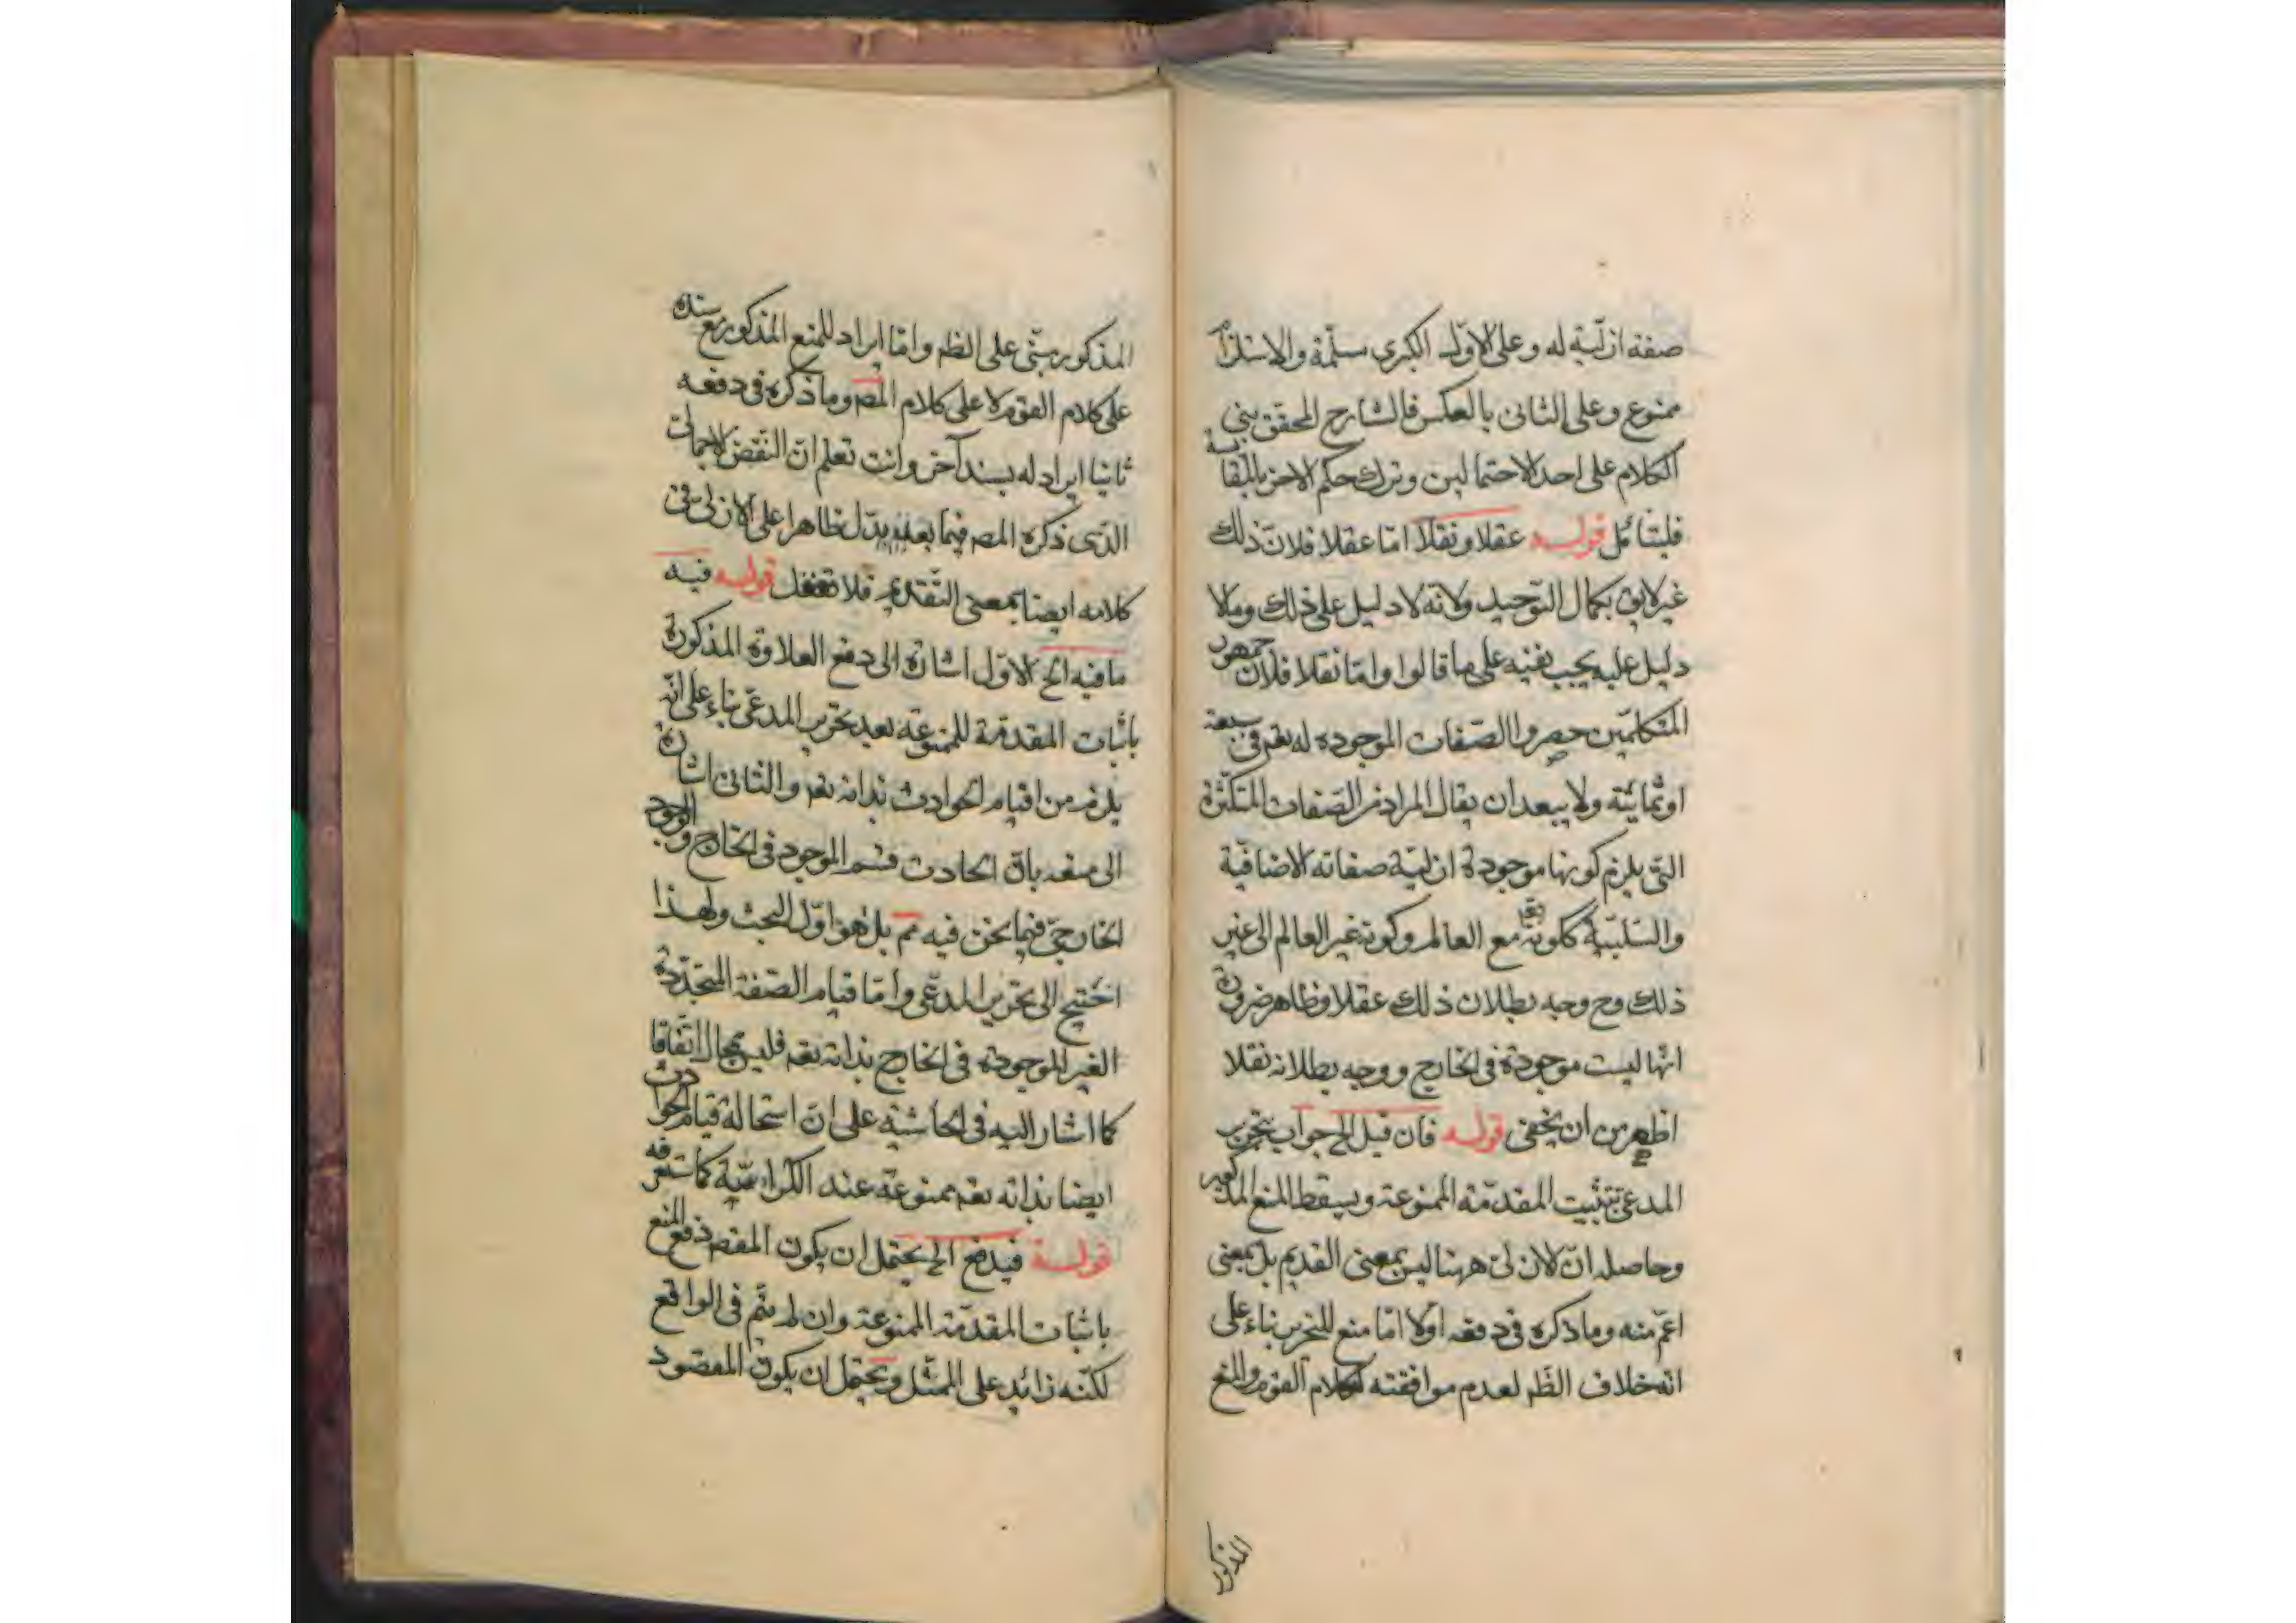 صفة ازلية له وعلى الاول الكبرى مسلمة والاستلزام
ممنوع وعلى الثانى بالعكس فالشارح المحقق بنى
الكلام على احد الاحتمالين وترك حكم الاخر بالمقايسة
فليتأمل قوله عقلا ونقلا امّا عقلا فلانّ ذلك
غير لايق بكمال التوحيد ولانه لا دليل على ذلك وما لا
دليل عليه يجب نفيه على ما قالوا وامّا نقلا فلان جمهور
المتكلمين حصروا الصّفات الموجوده له تعم فى سبعة
او ثمانية ولا يبعد ان يقال المراد من الصّفات المتكثرة
التى يلزم كونها موجودة ازلية صفاته الاضافية
والسّلبية ككونه تعم مع العالم وكونه غير العالم الى غير
ذلك وح وجه بطلان ذلك عقلا وظاهر ضرورة
انّها ليست موجودة فى الخارج ووجه بطلانه نقلا
اظهر من ان يخفى قوله فان قيل الخ جواب بتحرير
المدعى بتثبيت المقدّمة الممنوعة ويسقط المنع المذكور
وحاصله انّ الازلى ههنا ليس بمعنى القديم بل بمعنى
اعمّ منه وما ذكره فى دفعه اولا امّا منع للتحرير بناء على
انه خلاف الظّم لعدم موافقته لكلام القوم والمنع
المذكور
المذكور مبنّى على الظم وامّا ايراد للمنع المذكور مع سنده
على كلام القوم لا على كلام المص وما ذكره فى دفعه
ثانيا ايراد له بسند آخر وانت تعلم انّ النّقض الاجمالى
الذّى ذكره المص فيما بعد يدّل ظاهرا على الازلى فى
كلامه ايضا بمعنى التّقدم فلا تغفل قوله فيه
ما فيه الخ الاوّل اشارة الى دفع العلاوة المذكورة
باثبات المقدمة الممنوعة بعد تحرير المدعّى بناء على انّه
يلزم من اقيام الحوادث بذاته تعم والثانى اشارة
الى منعه بانّ الحادث قسم الموجود فى الخارج والوجود
الخارجىّ فيما نحن فيه مم بل هو اوّل البحث ولهذا
احتيج الى تحرير المدعّى وامّا قيام الصّفة المتجدّدة
الغير الموجوده فى الخارج بذاته تعم فليس بمحال اتّفاقا
كما اشار اليه فى الحاشية على انّ استحالة قيام الحوادث
ايضا بذاته تعم ممنوعة عند الكراميّة كما ستعرفه
قوله فيدفع الخ يحتمل ان يكون المقصود دفع المنع
باثبات المقدّمة الممنوعة وان لم يتم فى الواقع
لكنّه زائد على الممثّل ويحتمل ان يكون المقصود